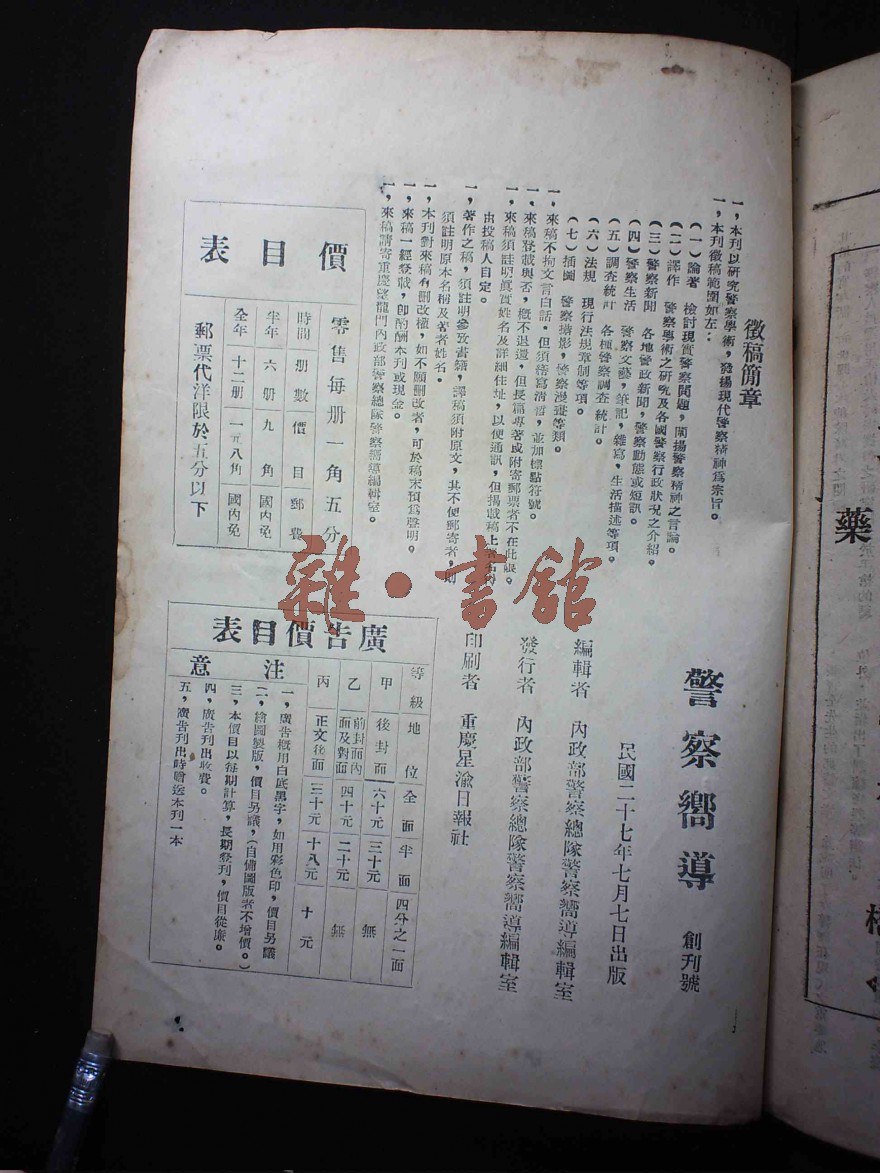 徵稿簡章
一，本刊以研究警察學術，發揚現代警察精神爲宗旨。
一，本刊徵稿範圍如左：
（一）論著　檢討現實警察問題，闡揚警察精神之言論。
（二）譯作　警察學術之研究及各國警察行政狀況之介紹。
（三）警察新聞　各地警政新聞，警察動態或短訊。
（四）警察生活　警察文藝，筆記，雜寫，生活描述等項。
（五）調查統計　各種警察調查統計。
（六）法規　現行法規章制等項。
（七）插圖　警察攝影，警察漫畫等類。
一，來稿不拘文言白話，但須繕寫清楚，並加標點符號。
一，來稿登載與否，概不退還，但長篇專著或附寄郵票者不在此限。
一，來稿須註明眞實姓名及詳細住址，以便通訊，但揭載稿上署名
由投稿人自定。
一，著作之稿，須註明參攷書籍，譯稿須附原文，其不便郵寄者，則
須註明原本名稱及著者姓名。
一，本刊對來稿有刪改權，如不願刪改者，可於稿末預爲聲明。
一，來稿一經登載，卽酌酬本刊或現金。
一，來稿請寄重慶望龍門內政部警察總隊警察嚮導編輯室。
價目表
零售每册一角五分
時間　册數　價目　郵費
半年　六册　九角　國內免
全年　十二册　一元八角　國內免
郵票代洋限於五分以下
警察嚮導　創刊號
民國二十七年七月七日出版
編輯者　內政部警察總隊警察嚮導編輯室
發行者　內政部警察總隊警察嚮導編輯室
印刷者　重慶星渝日報社
廣告價目表
等級　地位　全面　半面　四分之一面
甲　後封面　六十元　三十元　無
乙　前封面內面及對面　四十元　二十元　無
丙　正文後面　三十元　十八元　十元
注意
一，廣告概用白底黑字，如用彩色印，價目另議
二，繪圖製版，價目另議，（自備圖版者不增價。）
三，本價目以每期計算，長期登刊，價目從廉。
四，廣告刊出收費。
五，廣告刊出時贈送本刊一本
雜·書館
藥